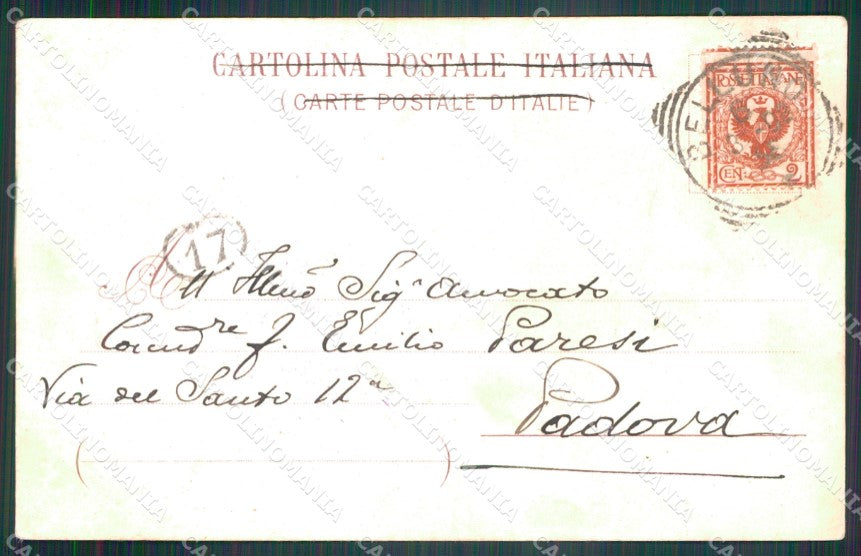 CARTOLINA POSTALE ITALIANA
(CARTE POSTALE D'ITALIE)
POSTE ITALIANE
CEN. 2
BELLUNO
17
All Illmo Sigr Avvocato
Comdre J. Emilio Paresi
Via del Santo 12a
Padova
CARTOLINOMANIA